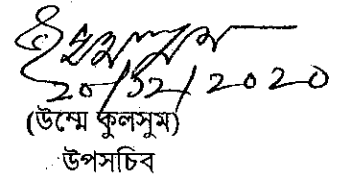 20/12/2020
(উম্মে কুলসুম)
উপসচিব